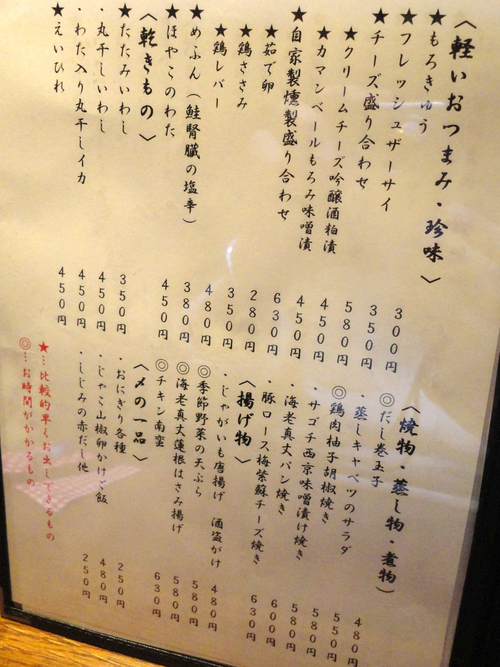 〈軽いおつまみ・珍味〉
★もろきゅう 300円
★フレッシュザーサイ 350円
★チーズ盛り合わせ 580円
★クリームチーズ吟醸酒粕漬 450円
★カマンベールもろみ味噌漬 450円
★自家製燻製盛り合わせ 630円
★茹で卵 280円
★鶏ささみ 350円
★鶏レバー 480円
★めふん（鮭腎臓の塩辛） 380円
★ほやこのわた 450円
〈乾きもの〉
★たたみいわし 350円
・丸干しいわし 450円
・わた入り丸干しイカ 450円
★えいひれ 450円
〈焼物・蒸し物・煮物〉
◎だし巻玉子 480円
・蒸しキャベツのサラダ 550円
◎鶏肉柚子胡椒焼き 580円
・サゴチ西京味噌漬け焼き 580円
・海老真丈パン焼き 600円
・豚ロース梅紫蘇チーズ焼き 630円
〈揚げ物〉
・じゃがいも唐揚げ　酒盗がけ 480円
◎季節野菜の天ぷら 580円
◎海老真丈蓮根はさみ揚げ 580円
◎チキン南蛮 630円
〈〆の一品〉
・おにぎり各種 250円
・じゃこ山椒卵かけご飯 480円
・しじみの赤だし他 250円
★…比較的早くお出しできるもの
◎…お時間がかかるもの